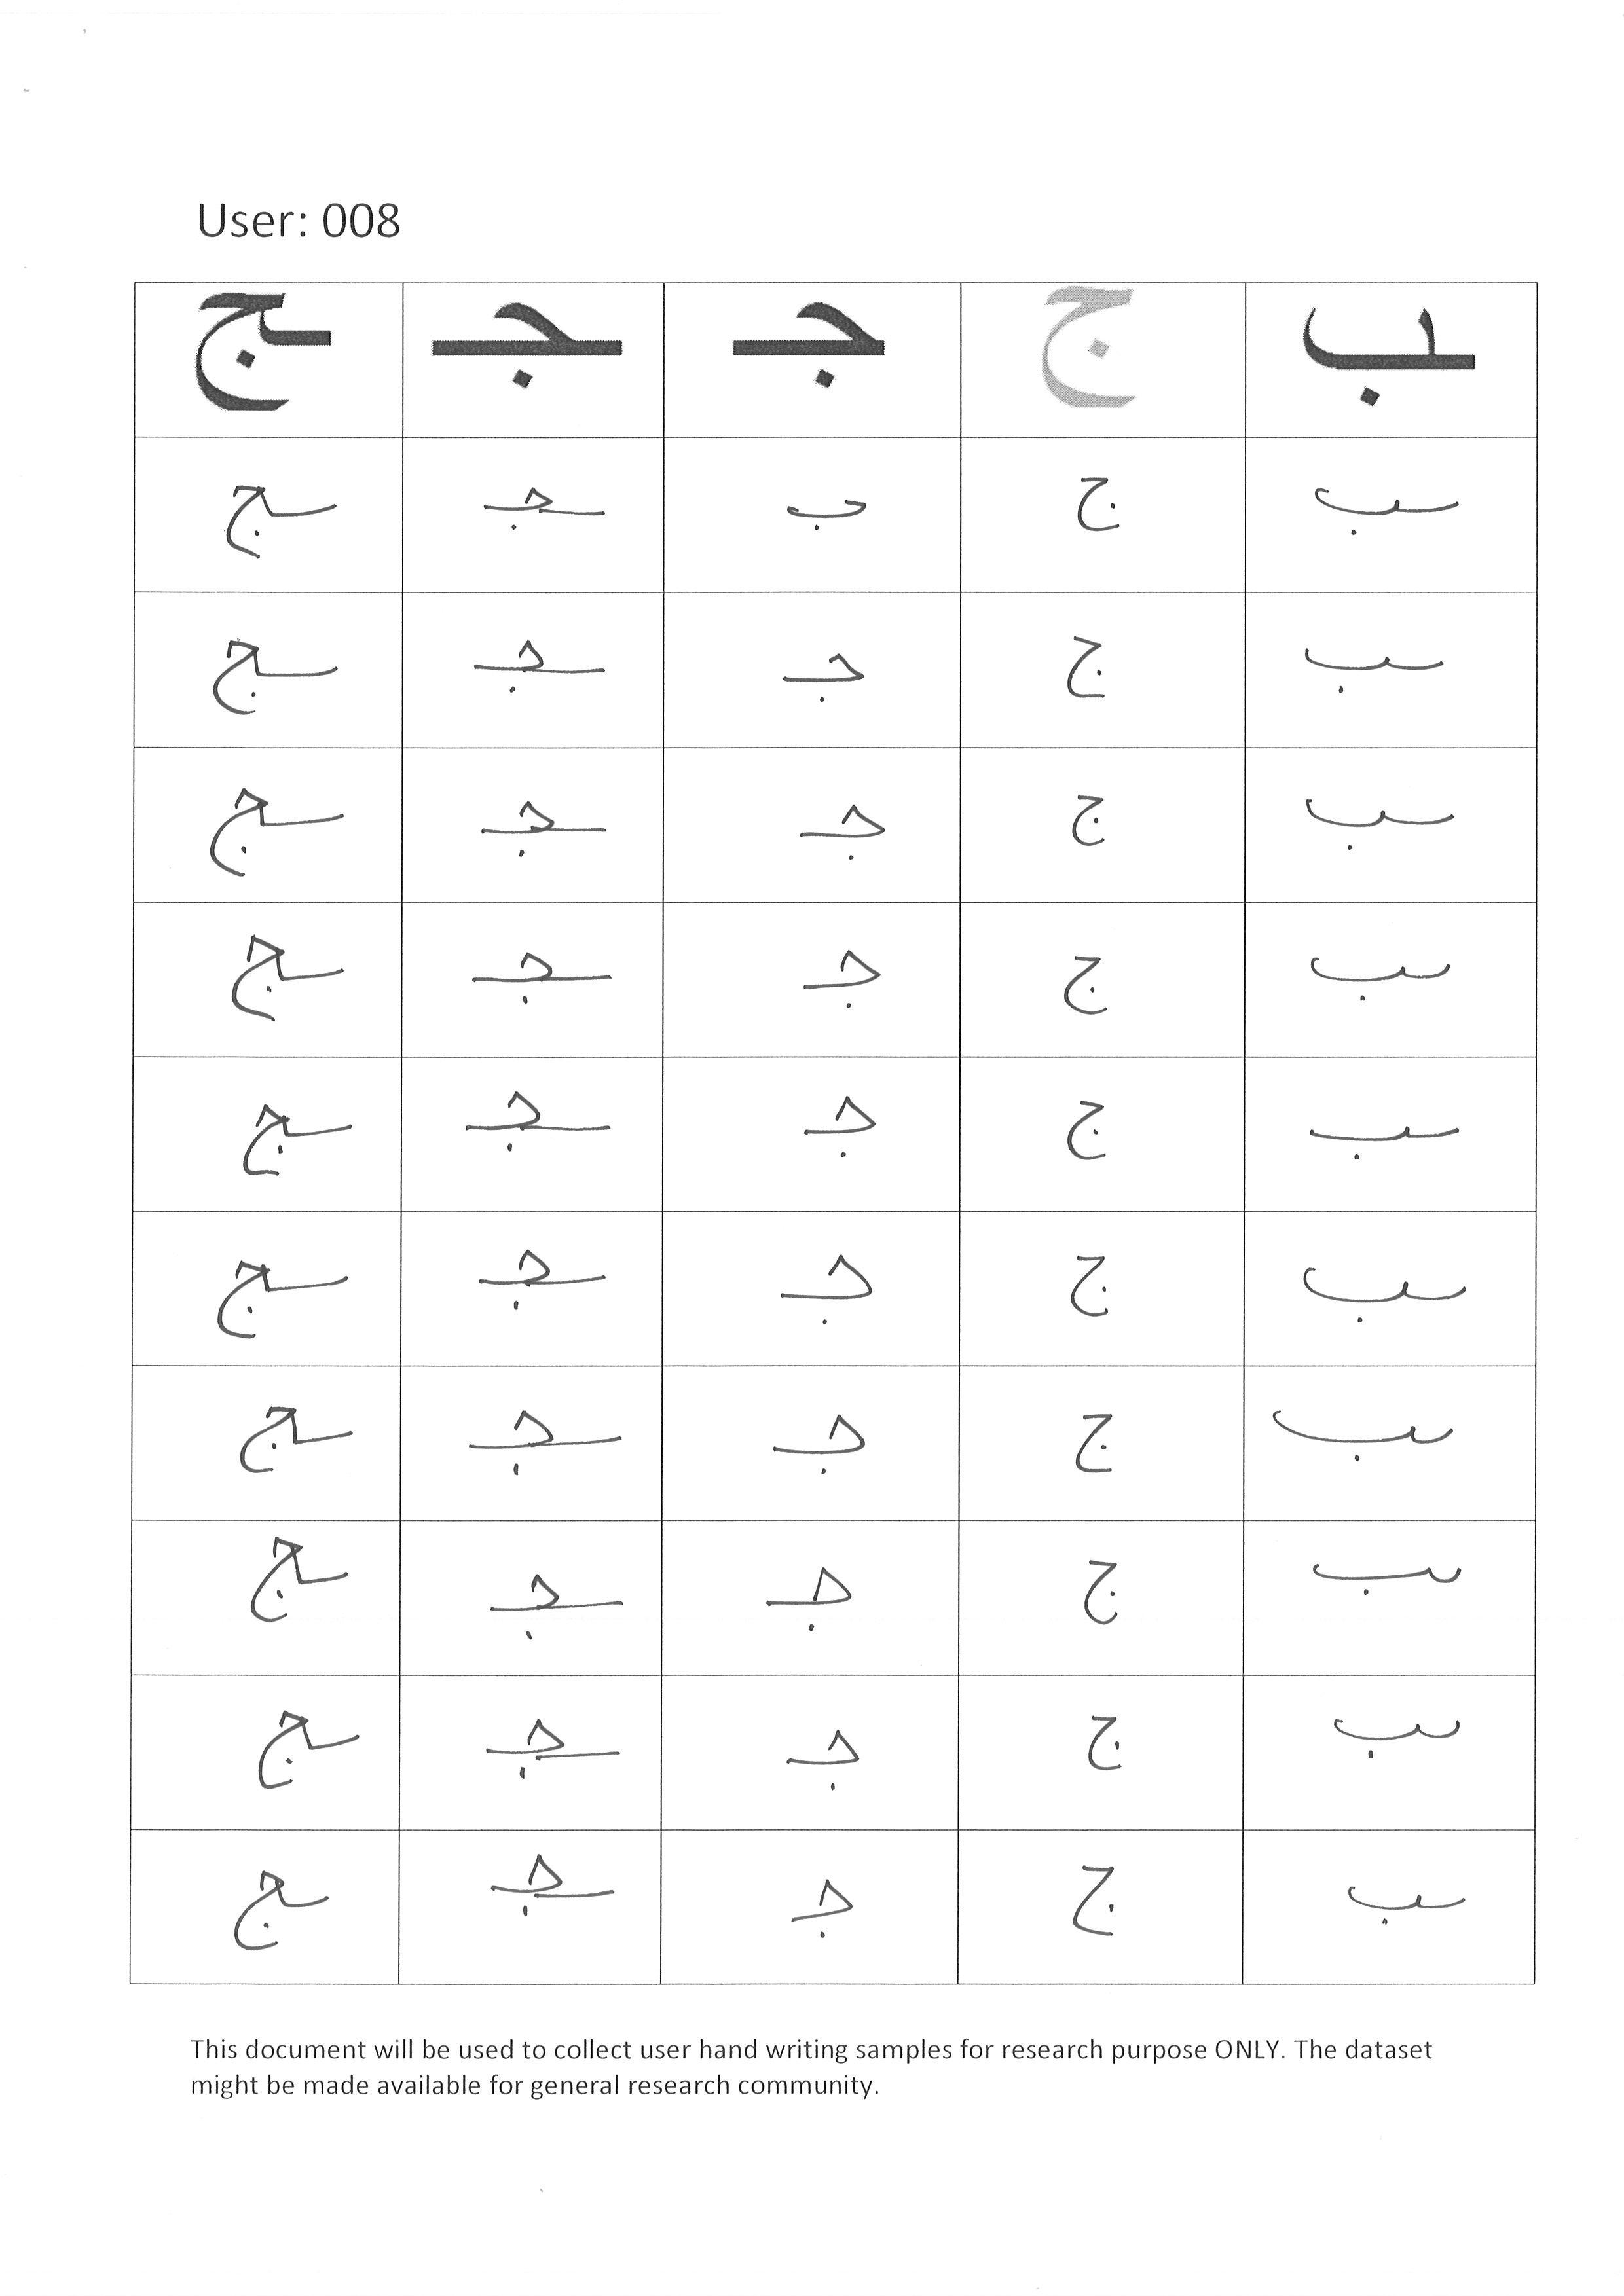 User: 008
ـب ج جـ ـجـ ـج
ـب ج جـ ـجـ ـج
ـب ج جـ ـجـ ـج
ـب ج جـ ـجـ ـج
ـب ج جـ ـجـ ـج
ـب ج جـ ـجـ ـج
ـب ج جـ ـجـ ـج
ـب ج جـ ـجـ ـج
ـب ج جـ ـجـ ـج
ـب ج جـ ـجـ ـج
ـب ج جـ ـجـ ـج
This document will be used to collect user hand writing samples for research purpose ONLY. The dataset
might be made available for general research community.